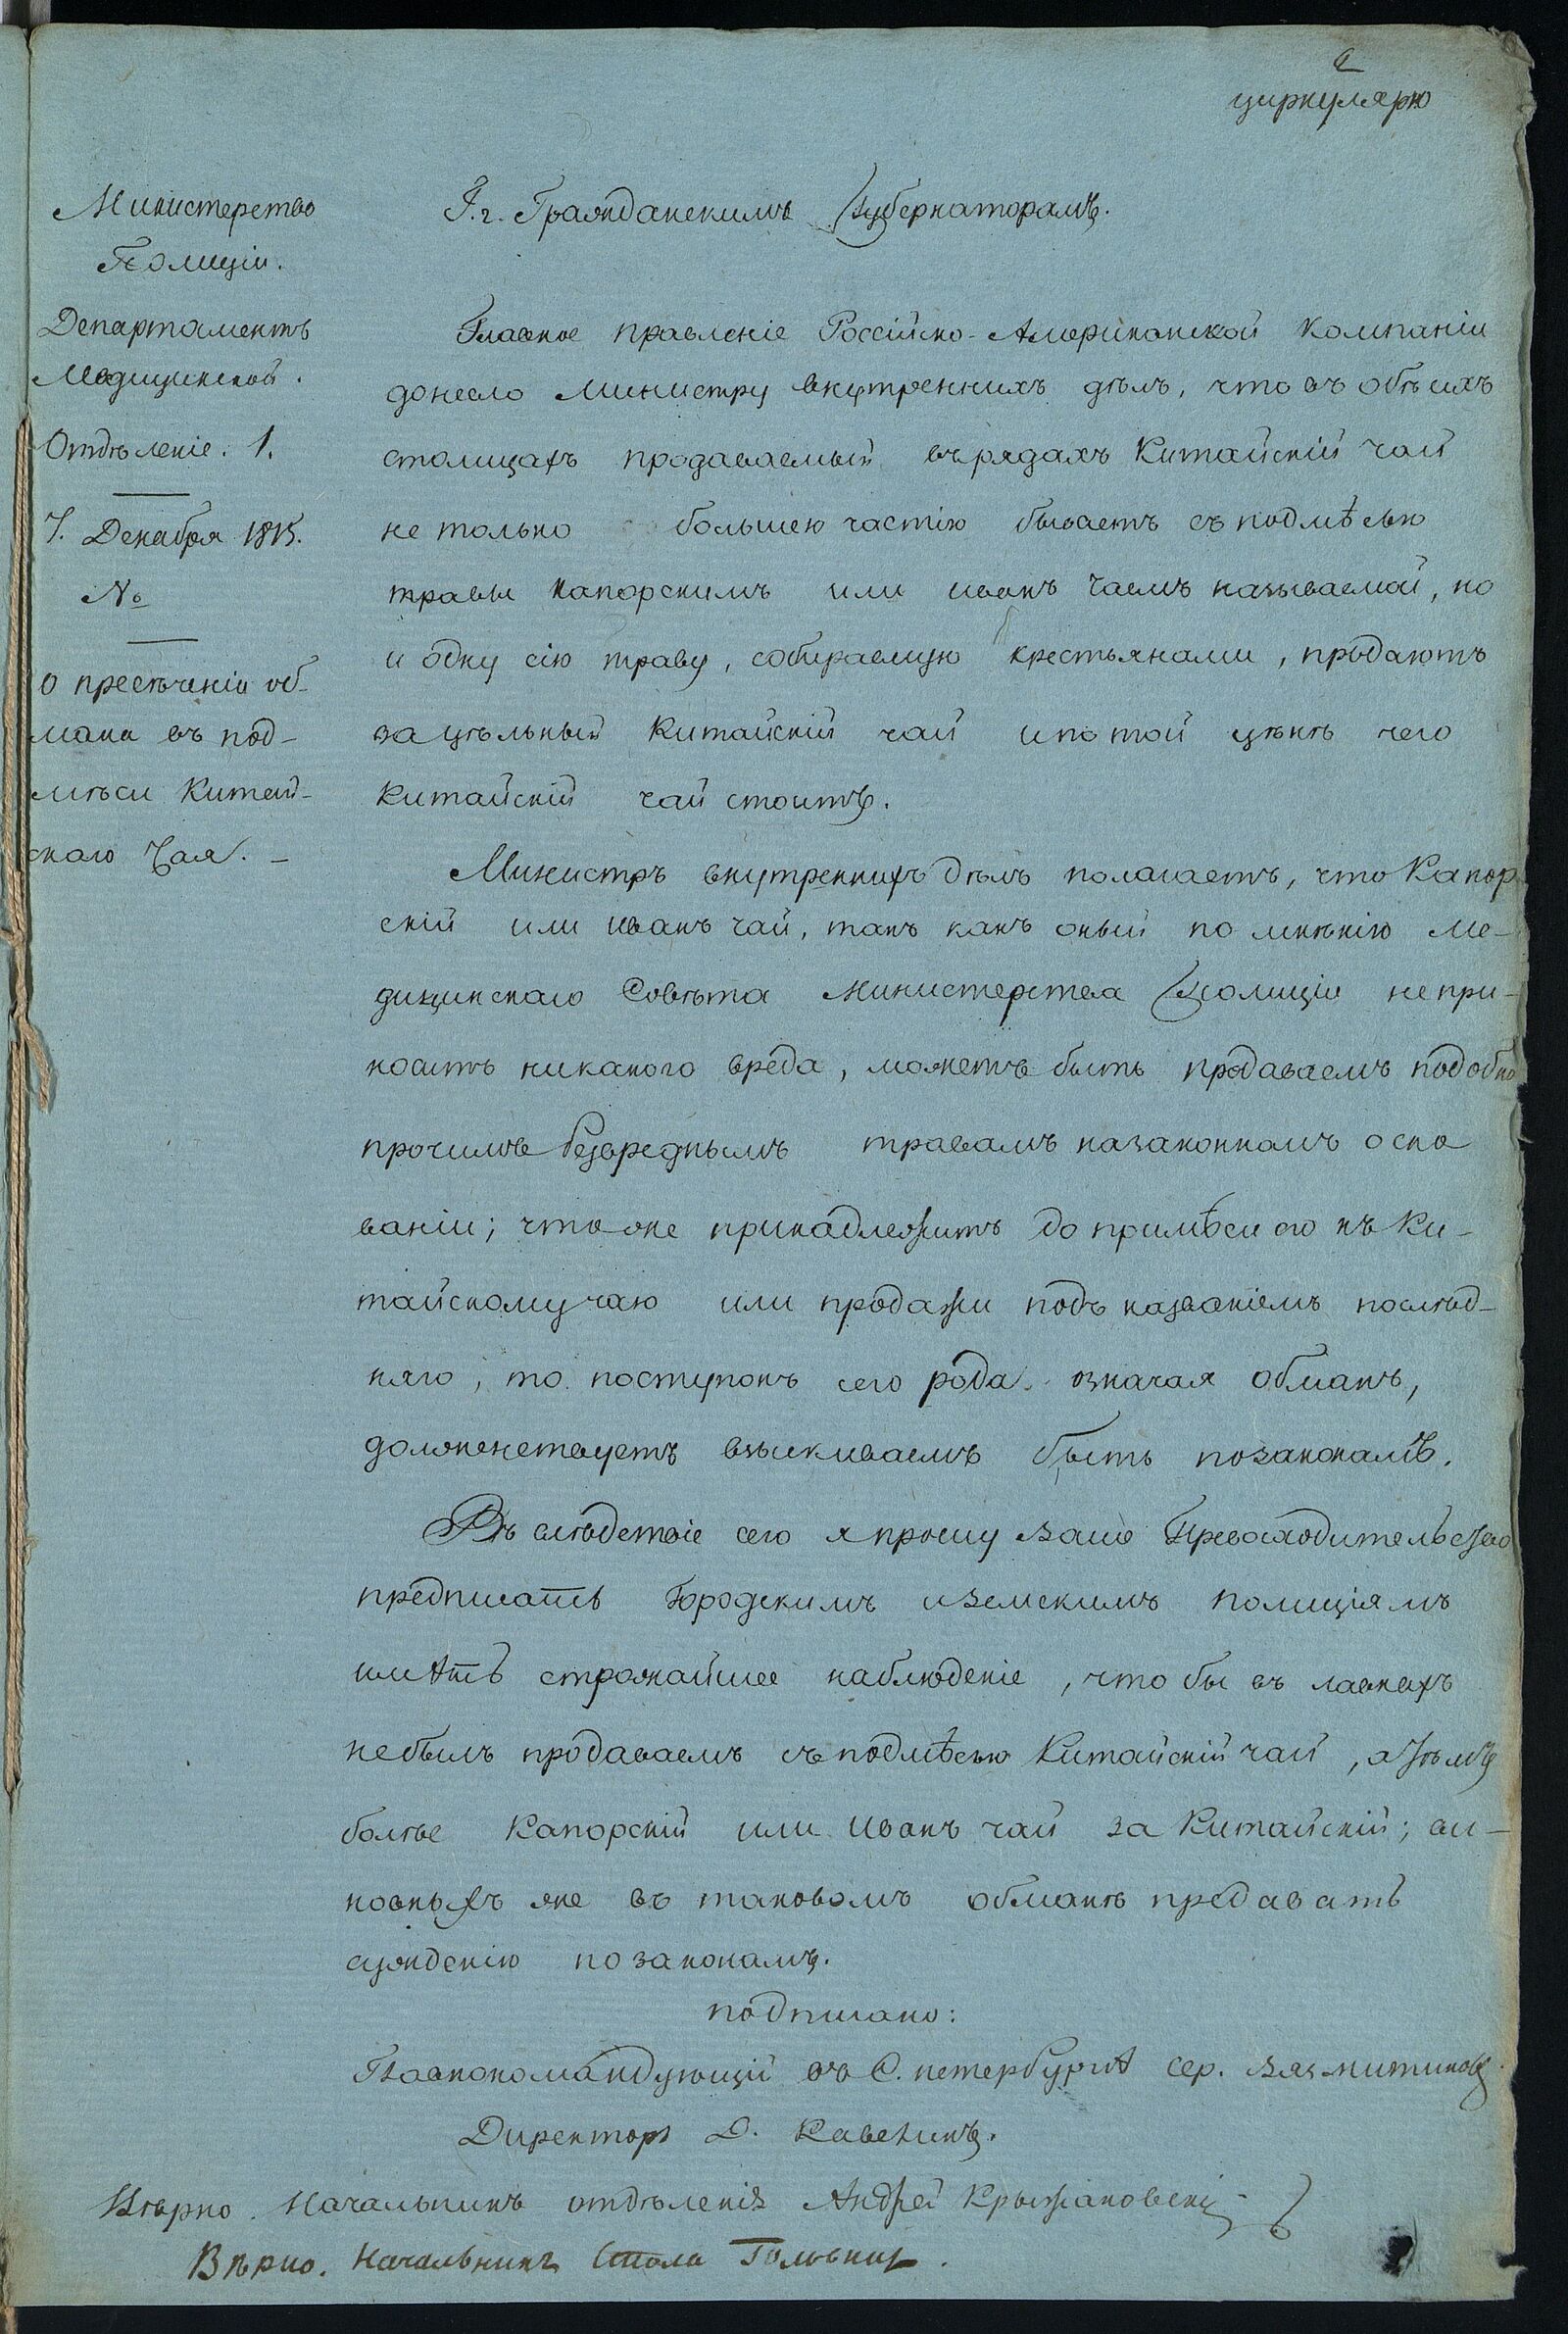 циркулярно
Министерство
Полиціи.
Департаментъ
Медицинской.
Отдѣленіе. 1.
7. Декабря 1815.
№
О пресѣченіи об-
мана въ под-
мѣси Китай-
скаго Чая. -
Г. г. Гражданскимъ Губернаторамъ.
Главное правленіе Россійско-Американской Компаніи
донесло Министру внутреннихъ дѣлъ, что въ обѣихъ
столицахъ продаваемый въ рядахъ Китайскій чай
не только большею частію бываетъ съ подмѣсью
травы капорскимъ или иванъ чаемъ называемой, но
и одну сію траву, собираемую крестьянами, продаютъ
за цѣльный Китайскій чай и по той цѣнѣ чего
Китайскій чай стоитъ.
Министръ внутреннихъ дѣлъ полагаетъ, что Капор
скій или иванъ чай, такъ какъ оный по мнѣнію Ме-
дицинскаго Совѣта Министерства Полиціи не при-
носитъ никакого вреда, можетъ быть продаваемъ подобно
прочимъ безвреднымъ травамъ на законномъ осно
ваніи; что же принадлежитъ до примѣси его къ Ки-
тайскому чаю или продажи подъ названіемъ послѣд-
няго, то поступокъ сего рода означая обманъ,
долженствуетъ взыскиваемъ быть по законамъ.
Въ слѣдствіе сего я прошу ваше Превосходительство
предписать Городскимъ и земскимъ полиціямъ
имѣть строжайшее наблюденіе, что бы въ лавкахъ
не былъ продаваемъ съ подмѣсью Китайскій чай, а тѣмъ
болѣе Капорскій или Иванъ чай за Китайскій; ви-
новныхъ же въ таковомъ обманѣ предавать
сужденію по законамъ.
подписано:
Главнокомандующій въ С. петербургѣ Сер. Вязмитиновъ.
Директоръ Д. Кавелинъ.
Вѣрно. Начальникъ отдѣленія Андрей Крыжановскій
Вѣрно. Начальникъ Стола